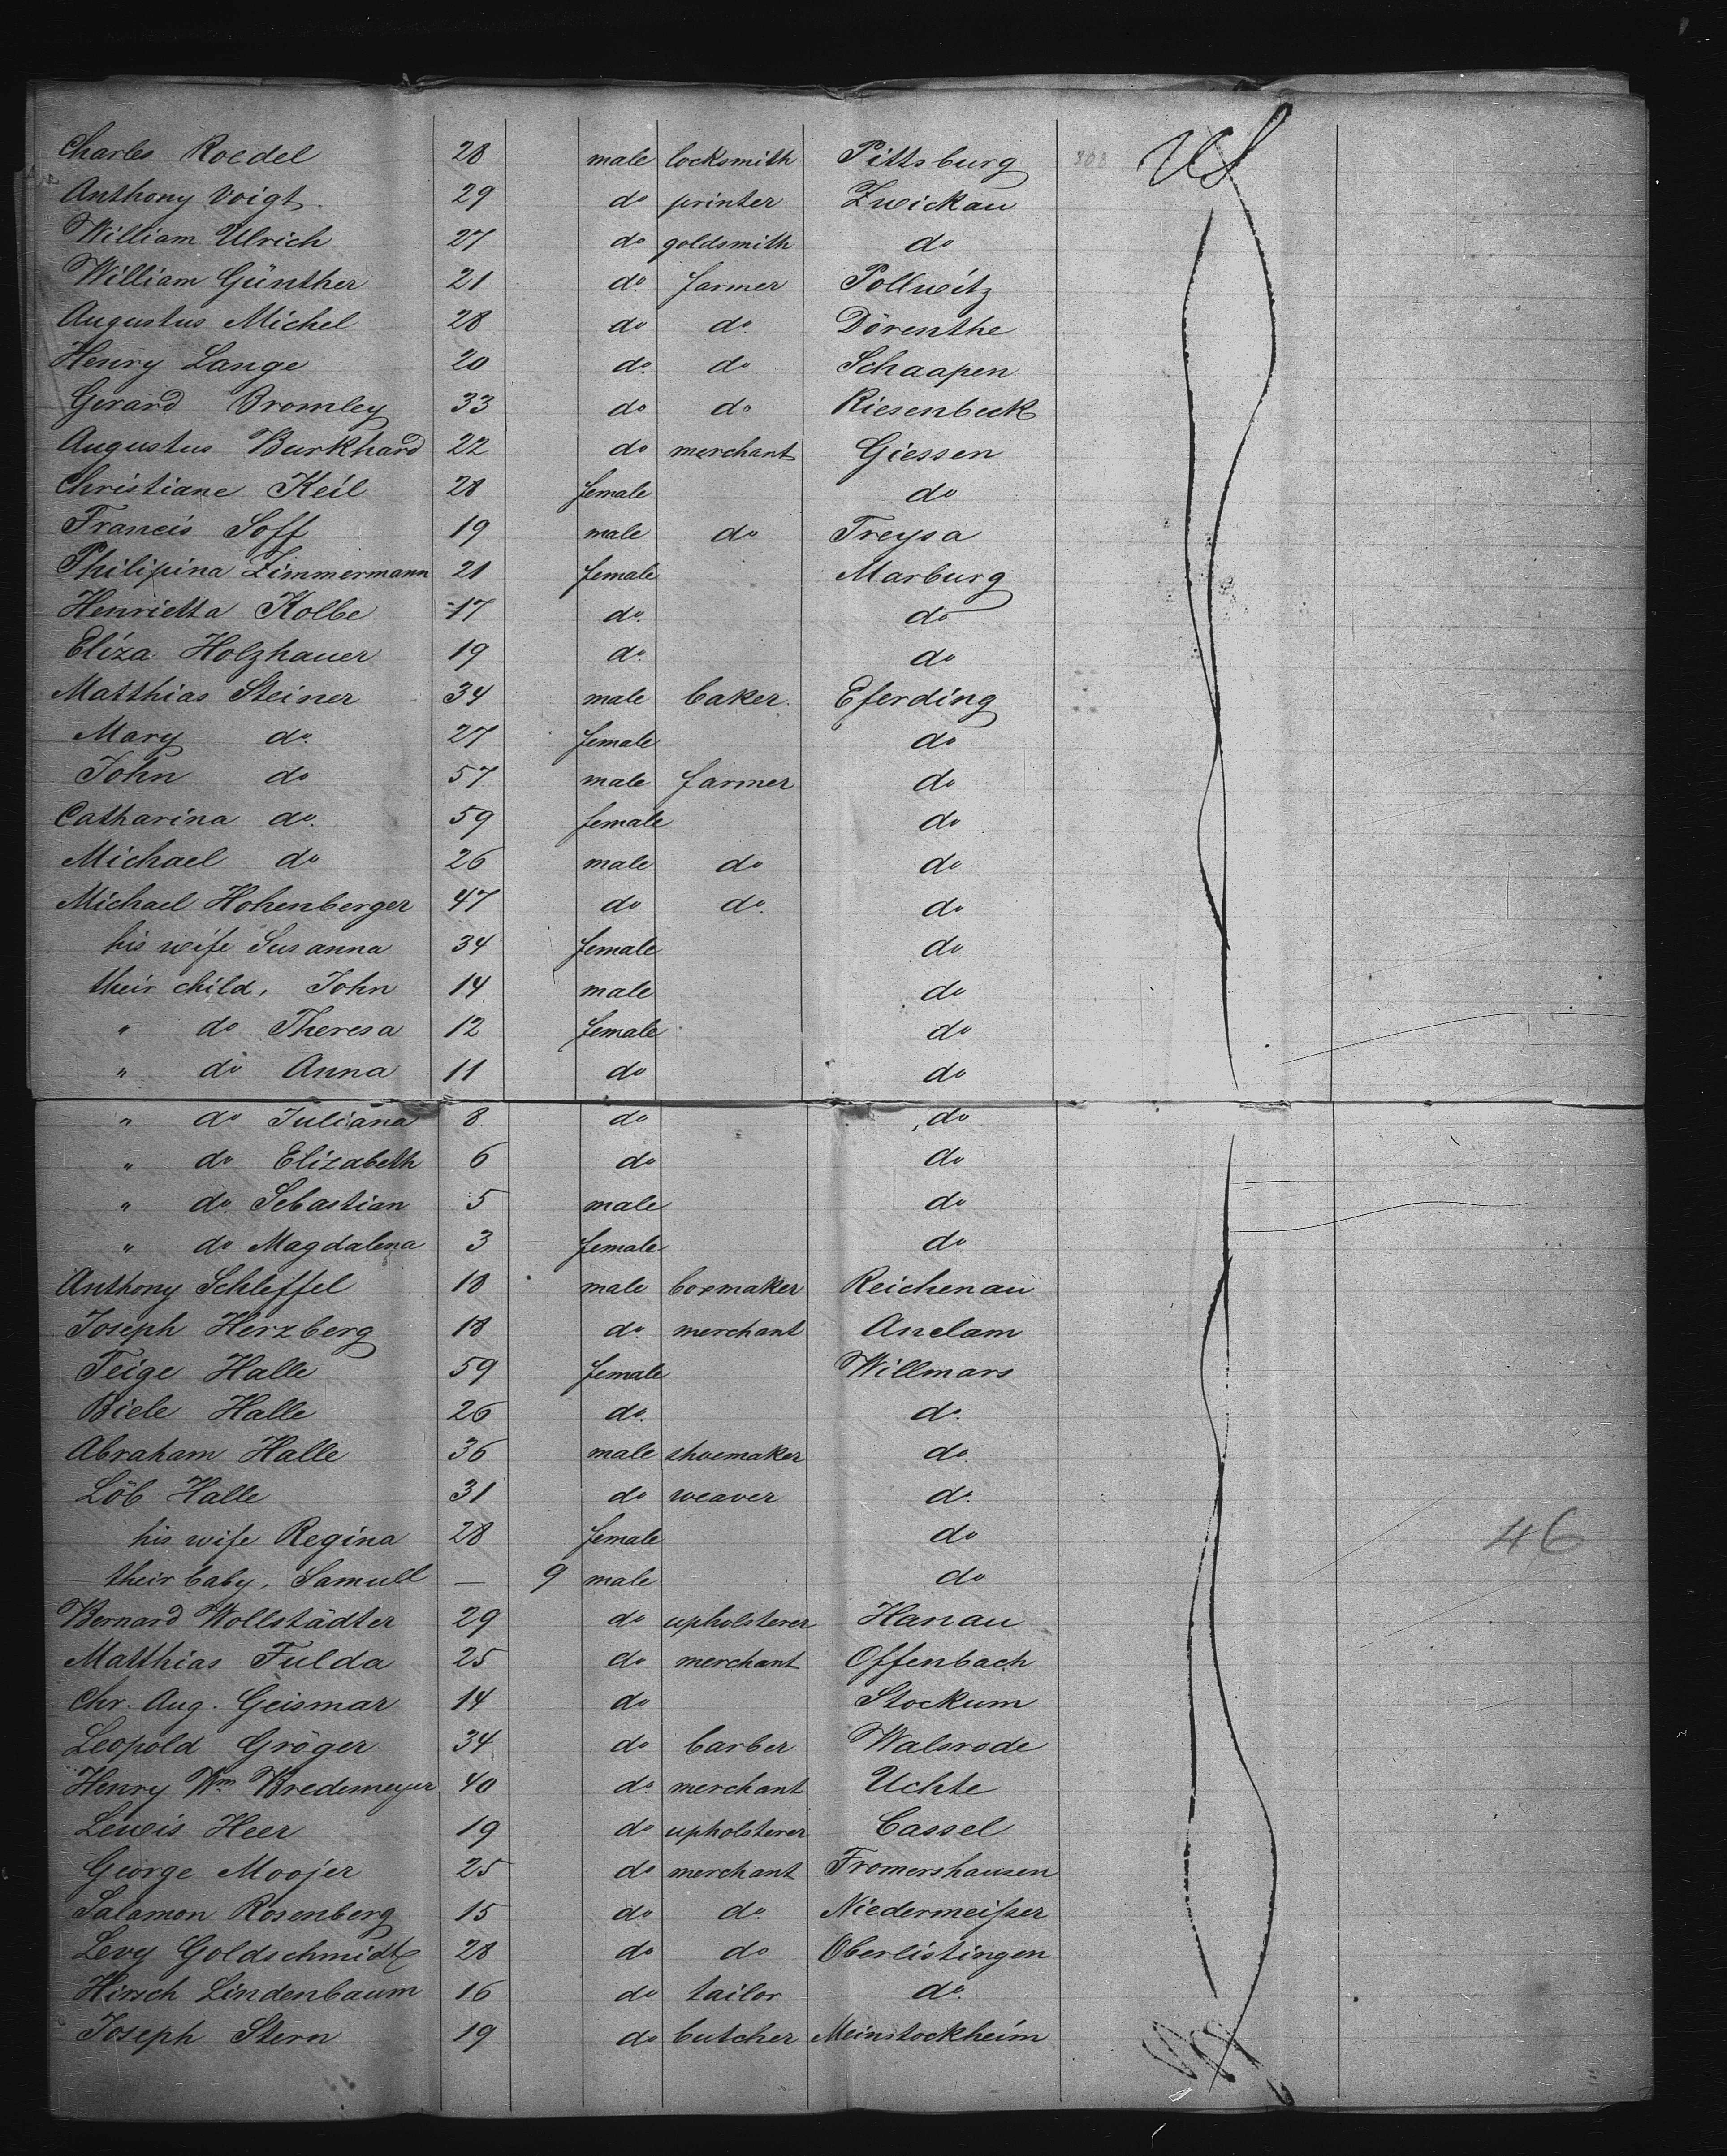 Charles Roedel 28 male locksmith Pittsburg 308 US
Anthony Voigt. 29 do printer Zwickau
William Ulrich 27 do goldsmith do
William Günther 21 do farmer Pollwitz
Augustus Michel 28 do do Dörenthe
Henry Lange 20 do do Schaapen
Gerard Bromley 33 do do Riesenbeck
Augustus Burkhard 22 do merchant Giessen
Christiane Keil 28 female do
Francis Soff 19 male do Treysa
Philipina Zimmermann 21 female Marburg
Henrietta Kolbe 17 do do
Eliza Holzhauer 19 do do
Matthias Steiner 34 male baker Eferding
Mary do 27 female do
John do 57 male farmer do
Catharina do 59 female do
Michael do 26 male do do
Michael Hohenberger 47 do do do
his wife Susanna 34 female do
their child, John 14 male do
" do Theresa 12 female do
" do Anna 11 do do
" do Juliana 8 do do
" do Elizabeth 6 do do
" do Sebastian 5 male do
" do Magdalena 3 female do
Anthony Schleffel 18 male boxmaker Reichenau
Joseph Herzberg 18 do merchant Anclam
Teige Halle 59 female Willmars
Biele Halle 26 do do
Abraham Halle 36 male shoemaker do
Löb Halle 31 do weaver do
his wife Regina 28 female do
46
their baby, Samuel — 9 male do
Bernard Wollstädter 29 do upholsterer Hanau
Matthias Fulda 25 do merchant Offenbach
Chr. Aug. Geismar 14 do Stockum
Leopold Gröger 34 do barber Walsrode
Henry Wm Bredemeyer 40 do merchant Uchte
Lewis Heer 19 do upholsterer Cassel
George Moojer 25 do merchant Fromershausen
Salamon Rosenberg 15 do do Niedermeißer
Levy Goldschmidt 28 do do Oberlistingen
Hirsch Lindenbaum 16 do tailor do
Joseph Stern 19 do butcher Meinstockheim